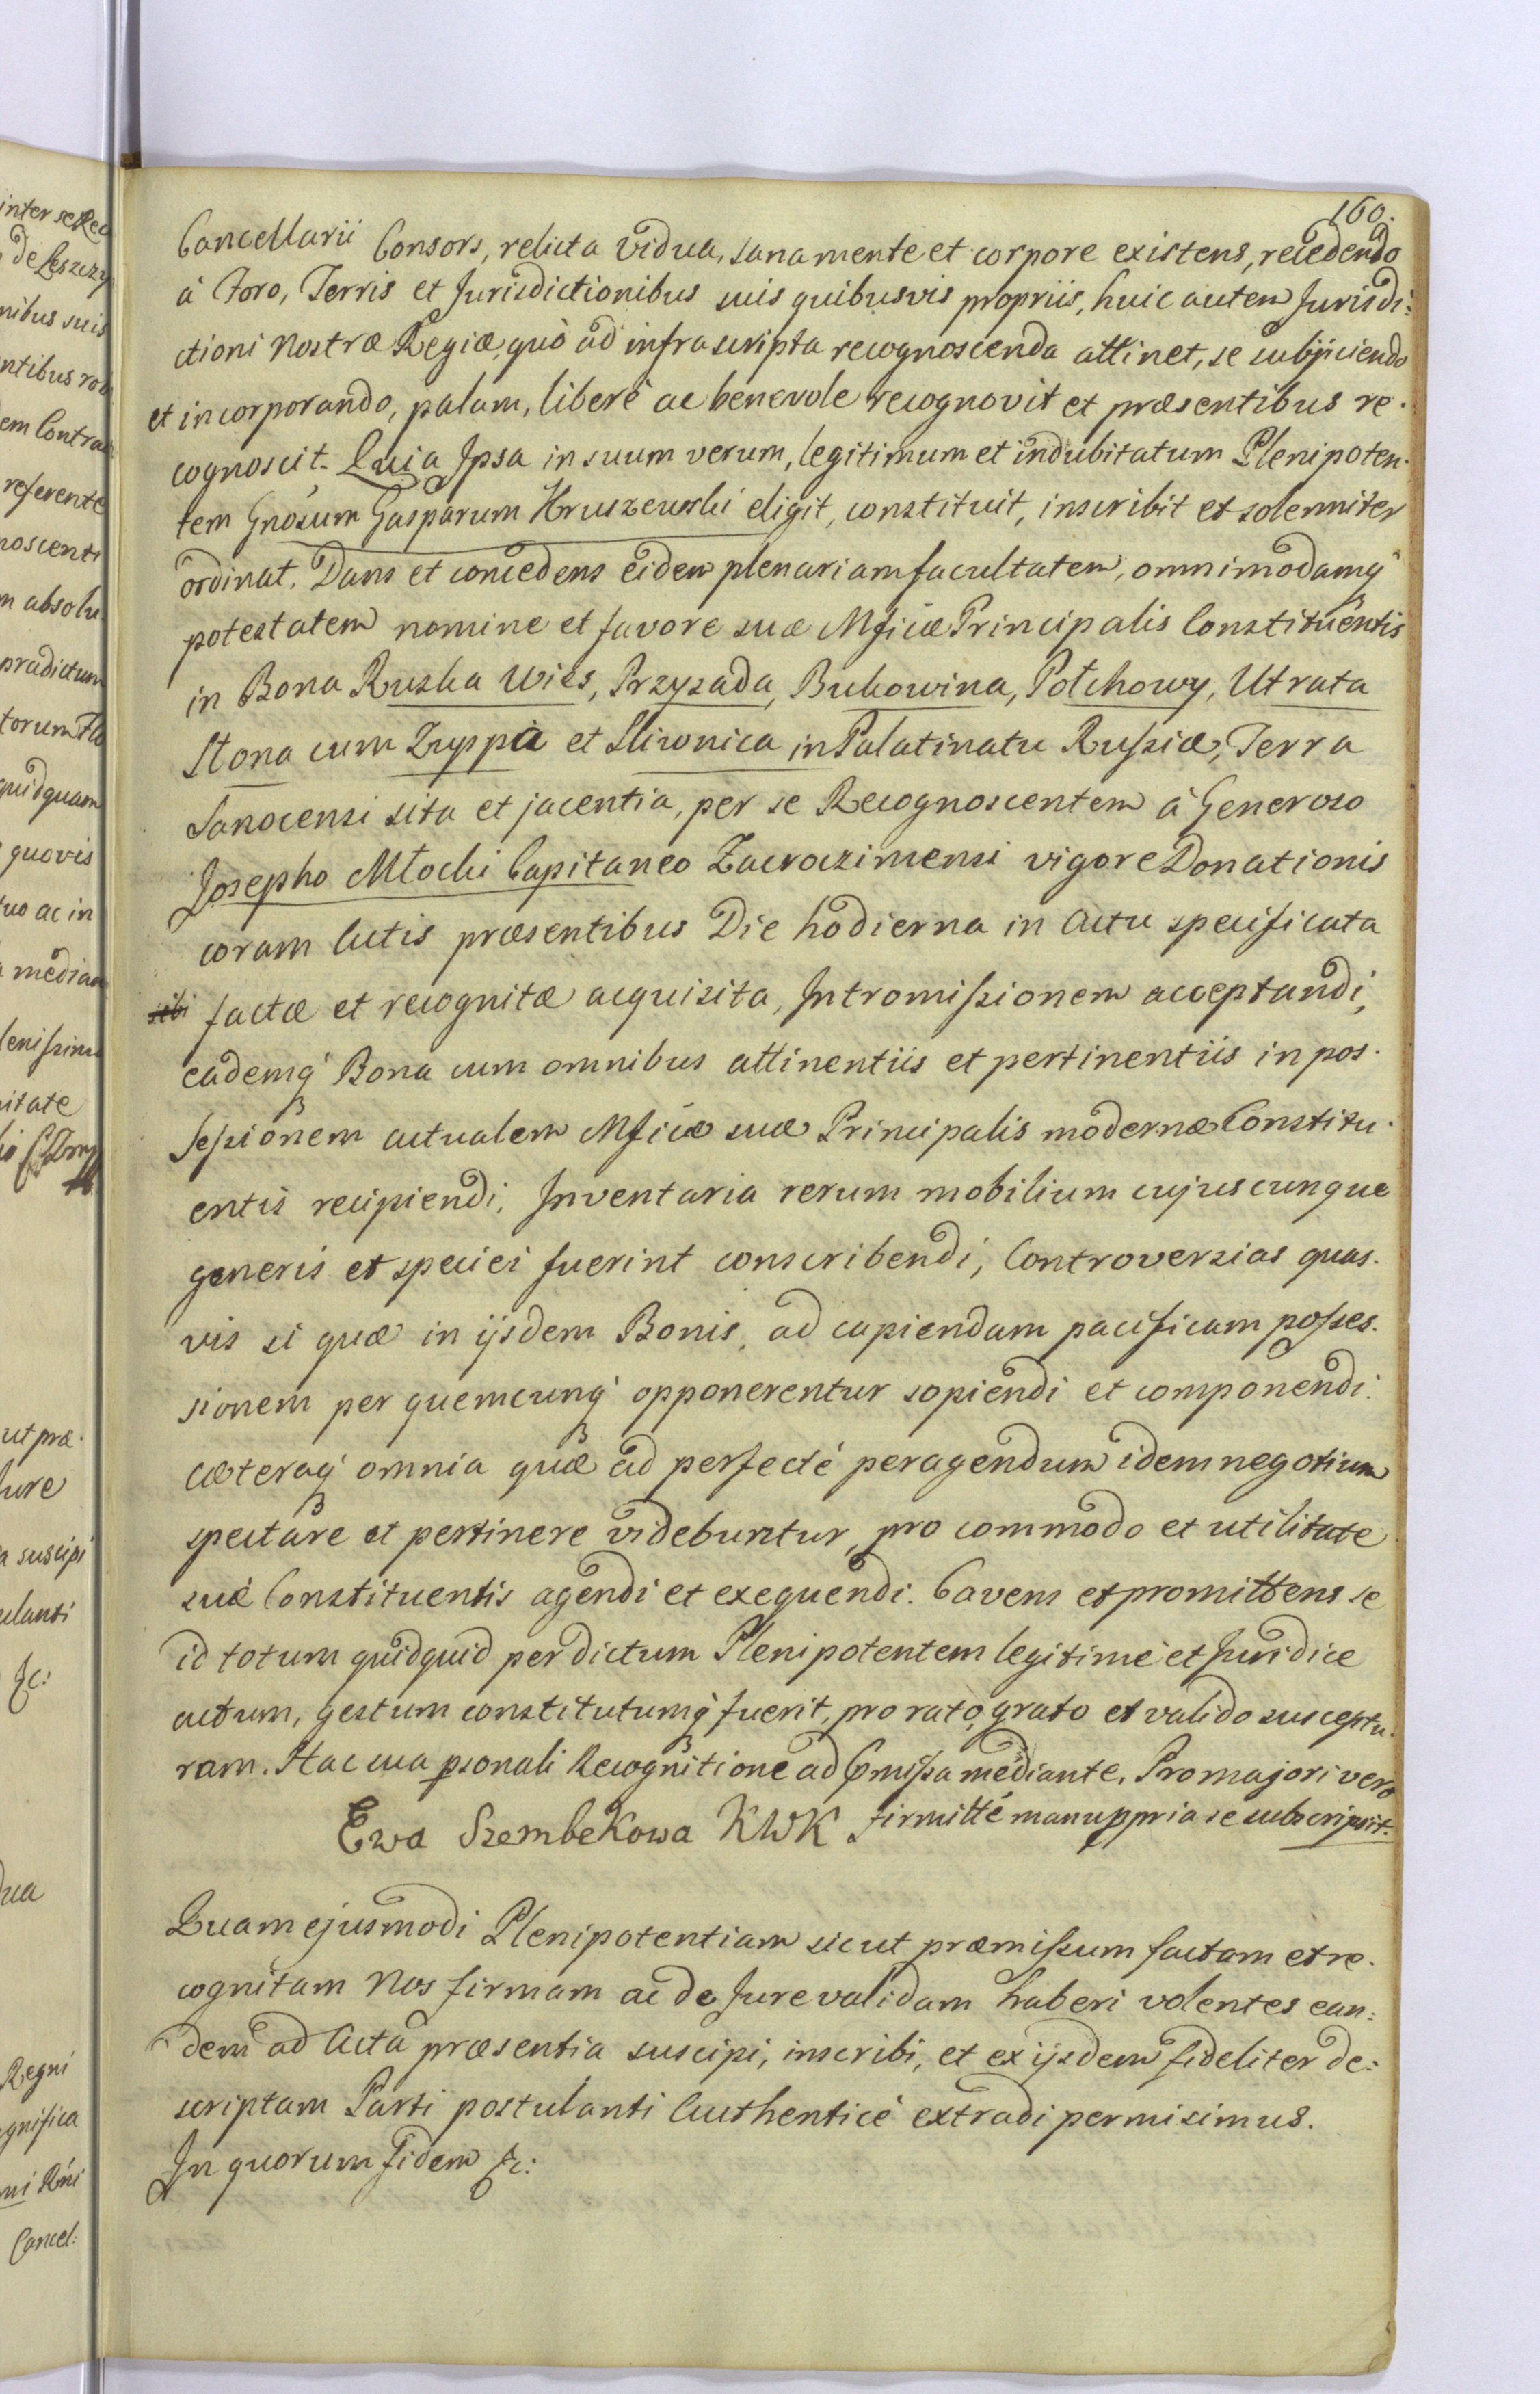 160.
Cancellarii Consors, relicta Vidua, sana mente et corpore existens, recedendo
à Foro, Terris et Jurisdictionibus suis quibusvis propriis, huic autem Jurisdi:
ctioni Nostræ Regiæ, quò ad infrascripta recognoscenda attinet, se subijciendo
et incorporando, palam, liberè ac benevole recognovit et præsentibus re.
cognoscit. Quia Ipsa in suum verum, legitimum et indubitatum Plenipoten.
tem Gnosum Gasparum Hruszewski eligit, constituit, inscribit et solenniter
ordinat. Dans et concedens eidem plenariam facultatem, omnimodamq
potestatem nomine et favore suæ Mficæ Principalis Constituentis
in Bona Ruska Wies, Przysada, Bukowina, Połchowy, Utrata
Słona cum Zuppa et Sliwnica in Palatinatu Russiæ, Terra
Sanocensi sita et jacentia, per se Recognoscentem à Generoso
Josepho Młocki Capitaneo Zacroczimensi vigore Donationis
coram Actis præsentibus Die hodierna in Actu specificata
sibi factæ et recognitæ acquisita, Intromissionem acceptandi,
eademq Bona cum omnibus attinentiis et pertinentiis in pos.
sessionem actualem Mficæ suæ Principalis modernæ Constitu.
entis recipiendi, Inventaria rerum mobilium cujuscunque
generis et speciei fuerint conscribendi, Controversias quas.
vis si quæ in ijsdem Bonis, ad capiendam pacificam posses.
sionem per quemcunq opponerentur sopiendi et componendi.
cæteraq omnia quæ ad perfectè peragendum idem negotium
spectare et pertinere videbuntur, pro commodo et utilitate
suæ Constituentis agendi et exequendi. Cavens et promittens se
id totum quidquid per dictum Plenipotentem legitimè et Juridice
actum, gestum constitutumq fuerit, pro rato, grato et valido susceptu.
ram. Hac sua psonali Recognitione ad Pmissa mediante. Pro majori vero
Ewa Szembekowa KWK firmitte manu ppria se subscripsit.
Quam ejusmodi Plenipotentiam sicut præmissum factam et re.
cognitam Nos firmam ac de Jure validam haberi volentes ean:
dem ad Acta præsentia suscipi, inscribi, et ex ijsdem fideliter de:
scriptam Parti postulanti Authenticè extradi permisimus.
In quorum Fidem &c: